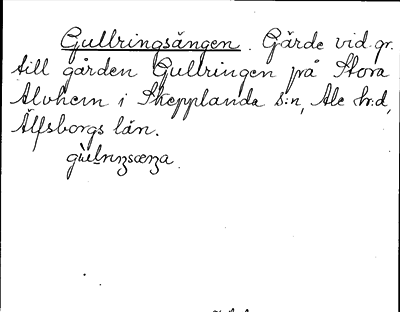 Gullringsängen. Gärde vid gr.
till gården Gullringen på Stora
Alvhem i Skepplanda s:n, Ale h:d,
Älfsborgs län.